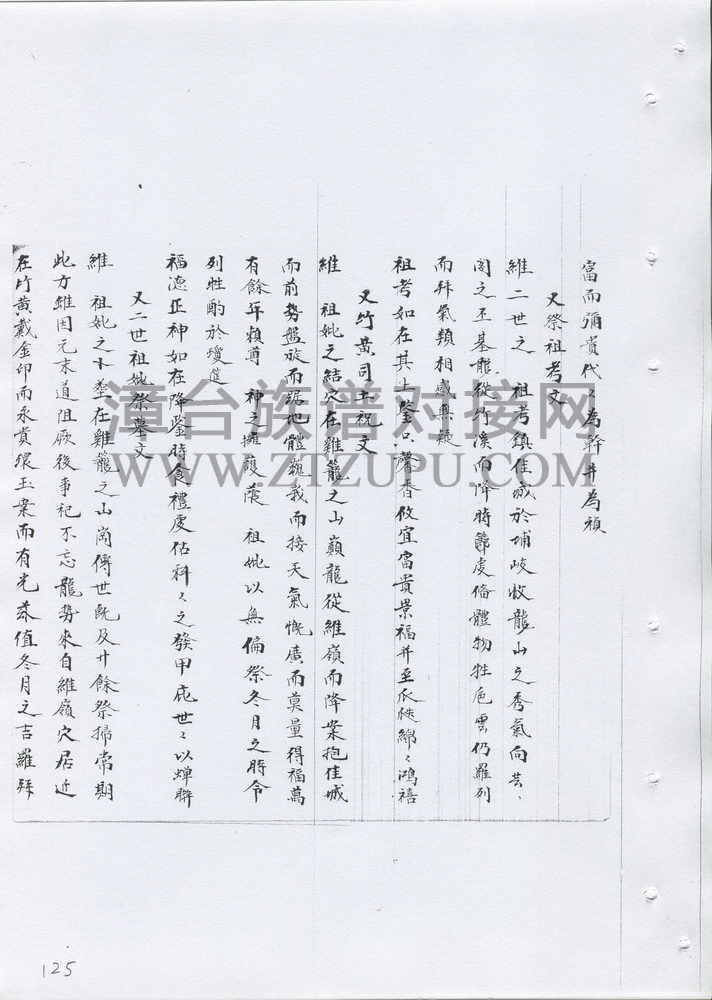 富而彌貴代〻為幹并為禎
又祭祖考文
維 二世之 祖考鎮佳城於埔岐收龍山之秀氣向芸〻
閣之丕基龍從竹溪而降時節虔脩體物牲色雲仍羅列
而拜氣類相感無疑
祖考如在其上鑒只馨香攸宜富貴景福并至瓜瓞綿〻鴻禧
又竹黃司土祝文
維 祖妣之結穴在雞籠之山巔龍從維嶺而降案抱佳城
而前勢盤旋而踞地體巍峩而接天氣慨廣而莫量得福萬
有餘年賴尊 神之擁護蔭 祖妣以無偏祭冬月之時令
列牲酌於瓊筵
福德正神如在降鑒時食禮虔估科〻之發甲庇世〻以蟬聯
又二世祖妣祭墓文
維 祖妣之卜塋在雞籠之山崗傳世既及廿餘祭掃常期
此方雖因元末道阻厥後事祀不忘龍勢來自維嶺穴居近
在竹黃戴金印而永貴環玉案而有光茲值冬月之吉羅拜
漳台族谱对接网
WWW.ZTZUPU.COM
125